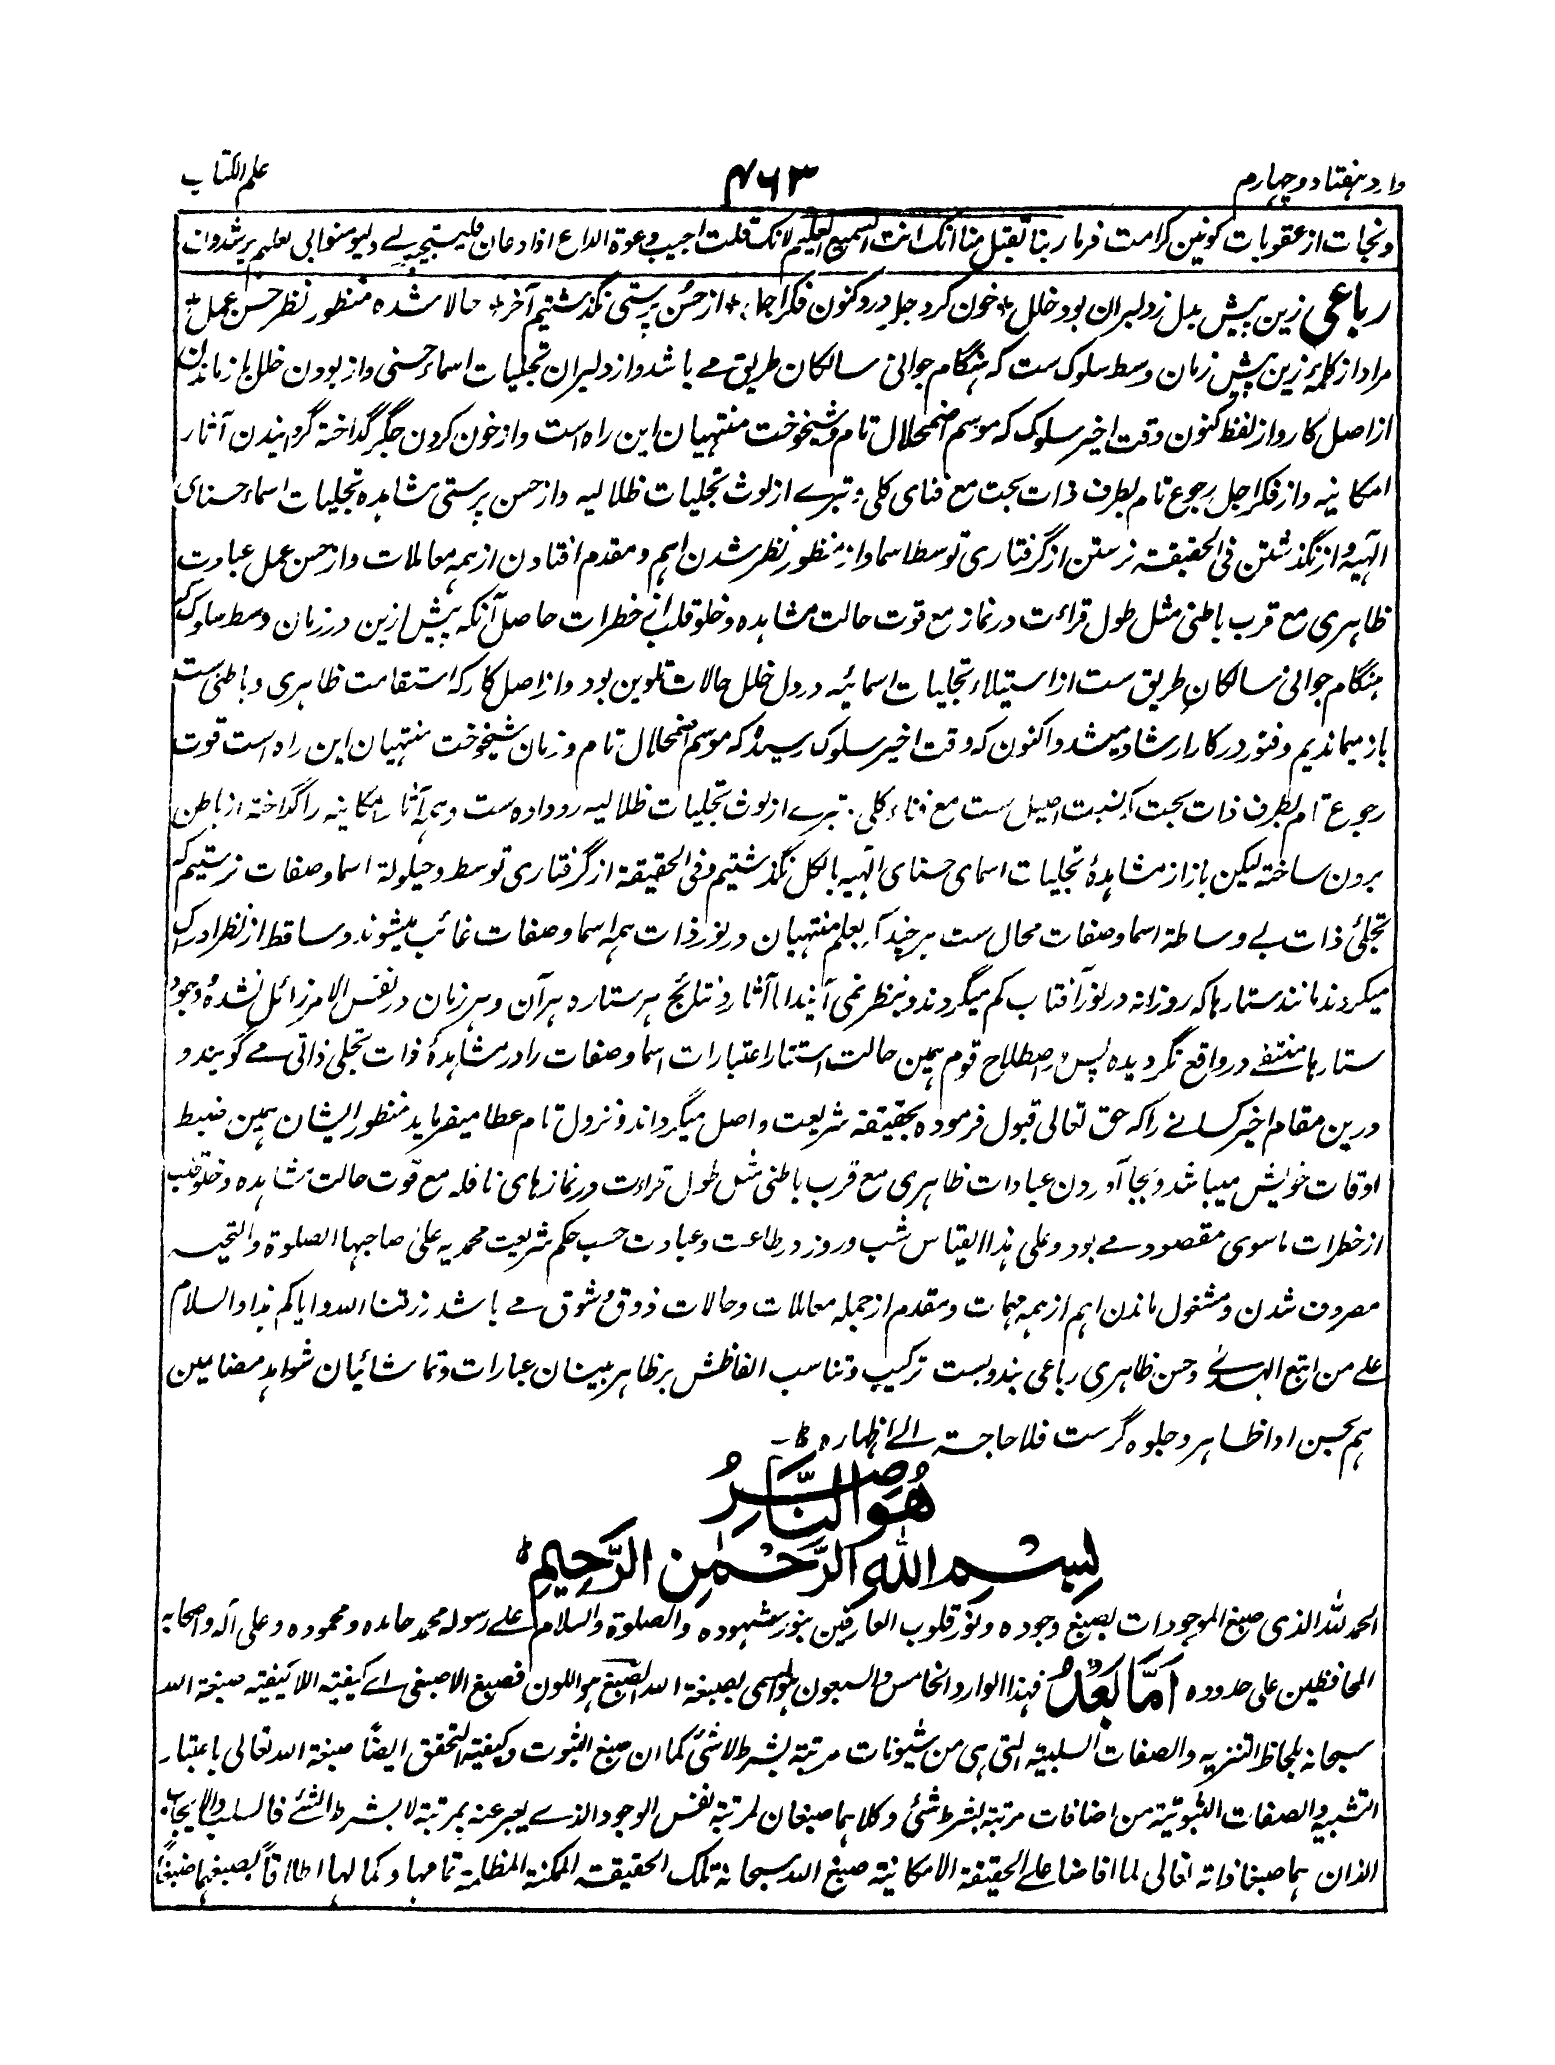 وارد هفتاد و چهارم
۴۶۳
علم الکتاب
ونجات از عقوبات کونین کرامت فرما ربنا تقبل منا انک انت السمیع العلیم لانک قلت اجیب دعوة الداع اذا دعان فلیستجیبوا لے ولیومنوا بی لعلهم یرشدون
رباعی زین پیش بدل ز دلبران بود خلل * خون کرد جگر درد کنون فکر اجل * از حسن پرستی نگذشتیم آخر * حالا شده منظور نظر حسن عمل *
مراد از کلمه زین پیش زمان وسط سلوک ست که هنگام جوانی سالکان طریق مے باشد و از دلبران تجلیات اسماء حسنی و از بودن خلل باز ماندن
از اصل کار و از لفظ کنون وقت اخیر سلوک که موسم اضمحلال تام و شیخوخت منتهیان این راه است و از خون کردن جگر گداخته گردانیدن آثار
امکانیه و از فکر اجل رجوع تام بطرف ذات بحت مع فنای کلی و تبرے از لوث تجلیات ظلالیه و از حسن پرستی مشاهده تجلیات اسماء حسنای
الٓهیه و از نگذشتن فی الحقیقة نرستن از گرفتاری توسط اسما و از منظور نظر شدن اهم و مقدم افتادن از همه معاملات و از حسن عمل عبادت
ظاهری مع قرب باطنی مثل طول قراءت در نماز مع قوت حالت مشاهده و خلو قلب از خطرات حاصل آنکه پیش ازین در زمان وسط سلوک که
هنگام جوانی سالکان طریق ست از استیلاء تجلیات اسمائیه در دل خلل حالات تلوین بود و از اصل کار که استقامت ظاهری و باطنی ست
باز میماندیم و فتور در کار ارشاد میشد و اکنون که وقت اخیر سلوک رسیده که موسم اضمحلال تام و زمان شیخوخت منتهیان این راه است قوت
رجوع تام بطرف ذات بحت که نسبت اصیل ست مع فناء کلی و تبرے از لوث تجلیات ظلالیه رو داده ست و همه آثار امکانیه را گداخته از باطن
برون ساخته لیکن باز از مشاهدۀ تجلیات اسمای حسنای الٓهیه بالکل نگذشتیم و فی الحقیقة از گرفتاری توسط و حیلولة اسما و صفات نرستیم که
تجلئ ذات بے وساطة اسما و صفات محال ست هر چند که بعلم منتهیان در نور ذات همه اسما و صفات غائب میشوند و ساقط از نظر ادراک
میگردند مانند ستارها که روزانه در نور آفتاب گم میگردند و بنظر نمی آیند اما آثار و نتائج هر ستاره هر آن و هر زمان در نفس الامر زائل نشده و وجود
ستارها منتفے در واقع نگردیده پس در اصطلاح قوم همین حالت استتار اعتبارات اسما و صفات را در مشاهدۀ ذات تجلی ذاتی مے گویند و
درین مقام اخیر کسانے را که حق تعالی قبول فرموده بحقیقة شریعت واصل میگرداند و نزول تام عطا میفرماید منظور ایشان همین ضبط
اوقات خویش میباشد و بجا آوردن عبادات ظاهری مع قرب باطنی مثل طول قراءت در نمازهای نافله مع قوت حالت مشاهده و خلو قلب
از خطرات ماسوی مقصود مے بود و علی هذا القیاس شب و روز در طاعت و عبادت حسب حکم شریعت محمدیه علی صاحبها الصلوة والتحیه
مصروف شدن و مشغول ماندن اهم از همه مهمات و مقدم از جمله معاملات و حالات ذوق و شوق مے باشد رزقنا الله وایاکم هذا والسلام
علے من اتبع الهدیٰ و حسن ظاهری رباعی بندوبست ترکیب و تناسب الفاظش بر ظاهر بینان عبارات و تماشائیان شواهد مضامین
هم بحسن ادا ظاهر و جلوه گرست فلا حاجة الے اظهاره
هُوَ النَّاصِرُ
بِسْمِ اللهِ الرَّحْمٰنِ الرَّحِیْمِ
الحمد لله الذی صبغ الموجودات بصبغ وجوده و نور قلوب العارفین بنور شهوده والصلوة والسلام علے رسوله محمد حامده ومحموده وعلی آله واصحابه
المحافظین علی حدوده اَمَّا بَعْدُ فهذا الوارد الخامس والسبعون هو المسمی بصبغة الله الصبغ هو اللون فصبغ الاصبغی اے کیفیته اللا کیفیته صبغة الله
سبحانه بلحاظ التنزیه والصفات السلبیه التی هی من شیونات مرتبة بشرط لا شئ کما ان صبغ الثبوت وکیفیة التحقق ایضًا صبغة الله تعالی باعتبار
التشبیه والصفات الثبوتیة من اضافات مرتبة بشرط شئ وکلاهما صبغان لمرتبة نفس الوجود الذے یعبر عنه بمرتبة لا بشرط الشئے فالسلب والایجاب
الذان هما صبغا ذاته تعالی لما افاضا علے الحقیقة الامکانیة صبغ الله سبحانه تلک الحقیقة الممکنة المظلمة تمامها وکمالها اطلاقًا بصبغهما صبغًا